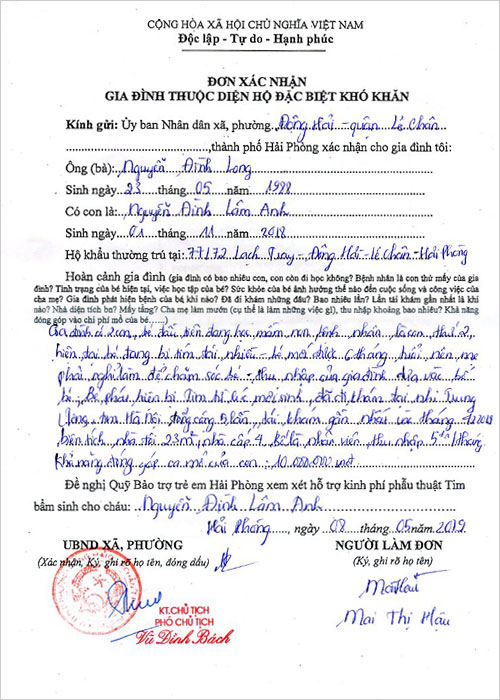 CỘNG HÒA XÃ HỘI CHỦ NGHĨA VIỆT NAM
Độc lập - Tự do - Hạnh phúc
ĐƠN XÁC NHẬN
GIA ĐÌNH THUỘC DIỆN HỘ ĐẶC BIỆT KHÓ KHĂN
Kính gửi: Ủy ban Nhân dân xã, phường Đông Hải - quận Lê Chân
,thành phố Hải Phòng xác nhận cho gia đình tôi:
Ông (bà): Nguyễn Đình Long
Sinh ngày 23 tháng 05 năm
Có con là: Nguyễn Đình Lâm Anh
Sinh ngày 01 tháng 11 năm 2018
Hộ khẩu thường trú tại: Lạch Tray - Đông Hải - Lê Chân - Hải Phòng
Hoàn cảnh gia đình (gia đình có bao nhiêu con, con còn đi học không? Bệnh nhân là con thứ mấy của gia
đình? Tình trạng của bé hiện tại, việc học tập của bé? Sức khỏe của bé ảnh hưởng thế nào đến cuộc sống và công việc
của cha mẹ? Gia đình phát hiện bệnh của bé khi nào? Đã đi khám những đâu? Bao nhiêu lần? Lần tái khám gần nhất là khi
nào? Nhà diện tích ba? Mấy tầng? Cha mẹ làm mướn (cụ thể là làm những việc gì), thu nhập khoảng bao nhiêu? Khả năng
đóng góp vào chi phí mổ của bé......)
Gia đình có 2 con, bé đầu tiên đang học mầm non, bệnh nhân là con thứ 2,
hiện tại bé đang bị tim tái nhiều - bé mới được 6 tháng tuổi, nên mẹ
phải nghỉ làm để chăm sóc bé - thu nhập của gia đình dựa vào bố
bé. Bé phát hiện bị Tim từ lúc mới sinh, đã đi khám tại nhi Trung
Ương, tim Hà Nội tổng cộng 5 lần, tái khám gần nhất vào tháng 2019
Diện tích nhà tôi 23m², nhà cấp 4 Bố là nhân viên thu nhập 5 tr/tháng
Khả năng đóng góp ca mổ của con: 10.000.000 vnđ
Đề nghị Quỹ Bảo trợ trẻ em Hải Phòng xem xét hỗ trợ kinh phí phẫu thuật Tim
bẩm sinh cho cháu: Nguyễn Đình Lâm Anh
Hải Phòng, ngày 08 tháng 05 năm 2019
UBND XÃ, PHƯỜNG
(Xác nhận, Ký, ghi rõ họ tên, đóng dấu)
KT.CHỦ TỊCH
PHÓ CHỦ TỊCH
Vũ Đình Bách
NGƯỜI LÀM ĐƠN
(Ký, ghi rõ họ tên)
Mai Thị Hậu